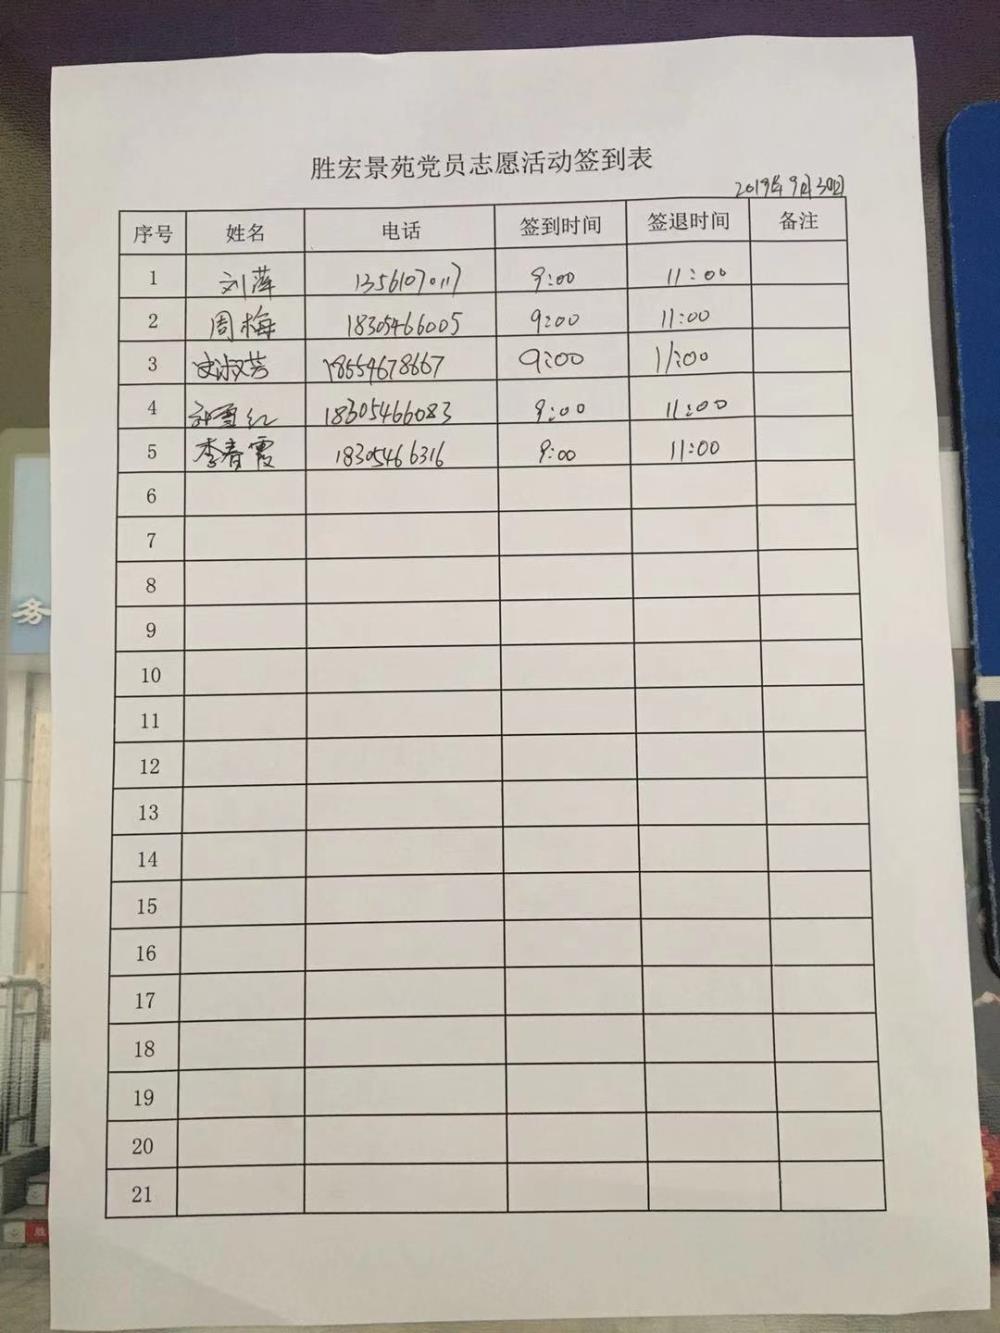 胜宏景苑党员志愿活动签到表
2019年9月30日
序号 姓名 电话 签到时间 签退时间 备注
1 刘萍 13561070117 9:00 11:00
2 周梅 18305466005 9:00 11:00
3 史淑芳 18554678667 9:00 11:00
4 雪红 18305466083 9:00 11:00
5 李春霞 18305466316 9:00 11:00
6
7
8
9
10
11
12
13
14
15
16
17
18
19
20
21
务
胜